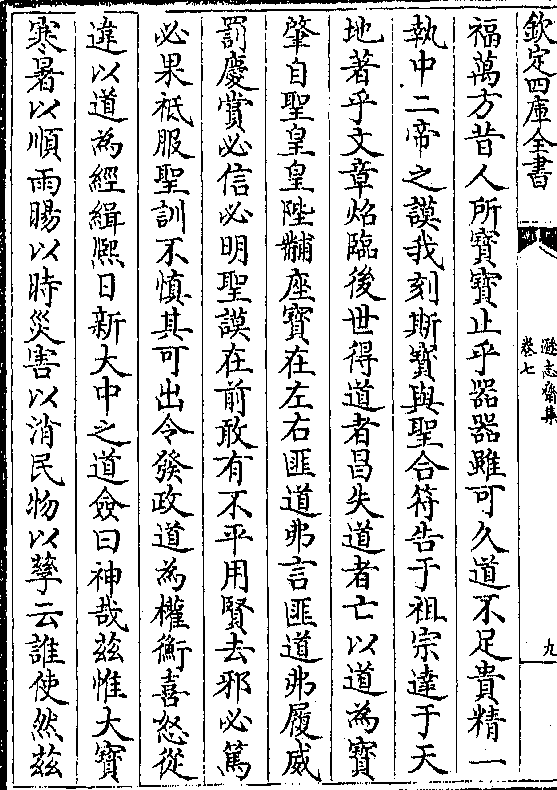 欽定四庫全書
遜志齋集
卷七
九
福萬方昔人所寶寶止乎器器雖可久道不足貴精一
執中二帝之謨我刻斯寶與聖合符告于祖宗達于天
地著乎文章焰臨後世得道者昌失道者亡以道為寶
肇自聖皇皇陛黼座寶在左右匪道弗言匪道弗履威
罰慶賞必信必明聖謨在前敢有不平用賢去邪必篤
必果祗服聖訓不慎其可出令發政道為權衡喜怒從
違以道為經緝熙日新大中之道僉曰神哉茲惟大寶
寒暑以順雨暘以時災害以消民物以孳云誰使然茲